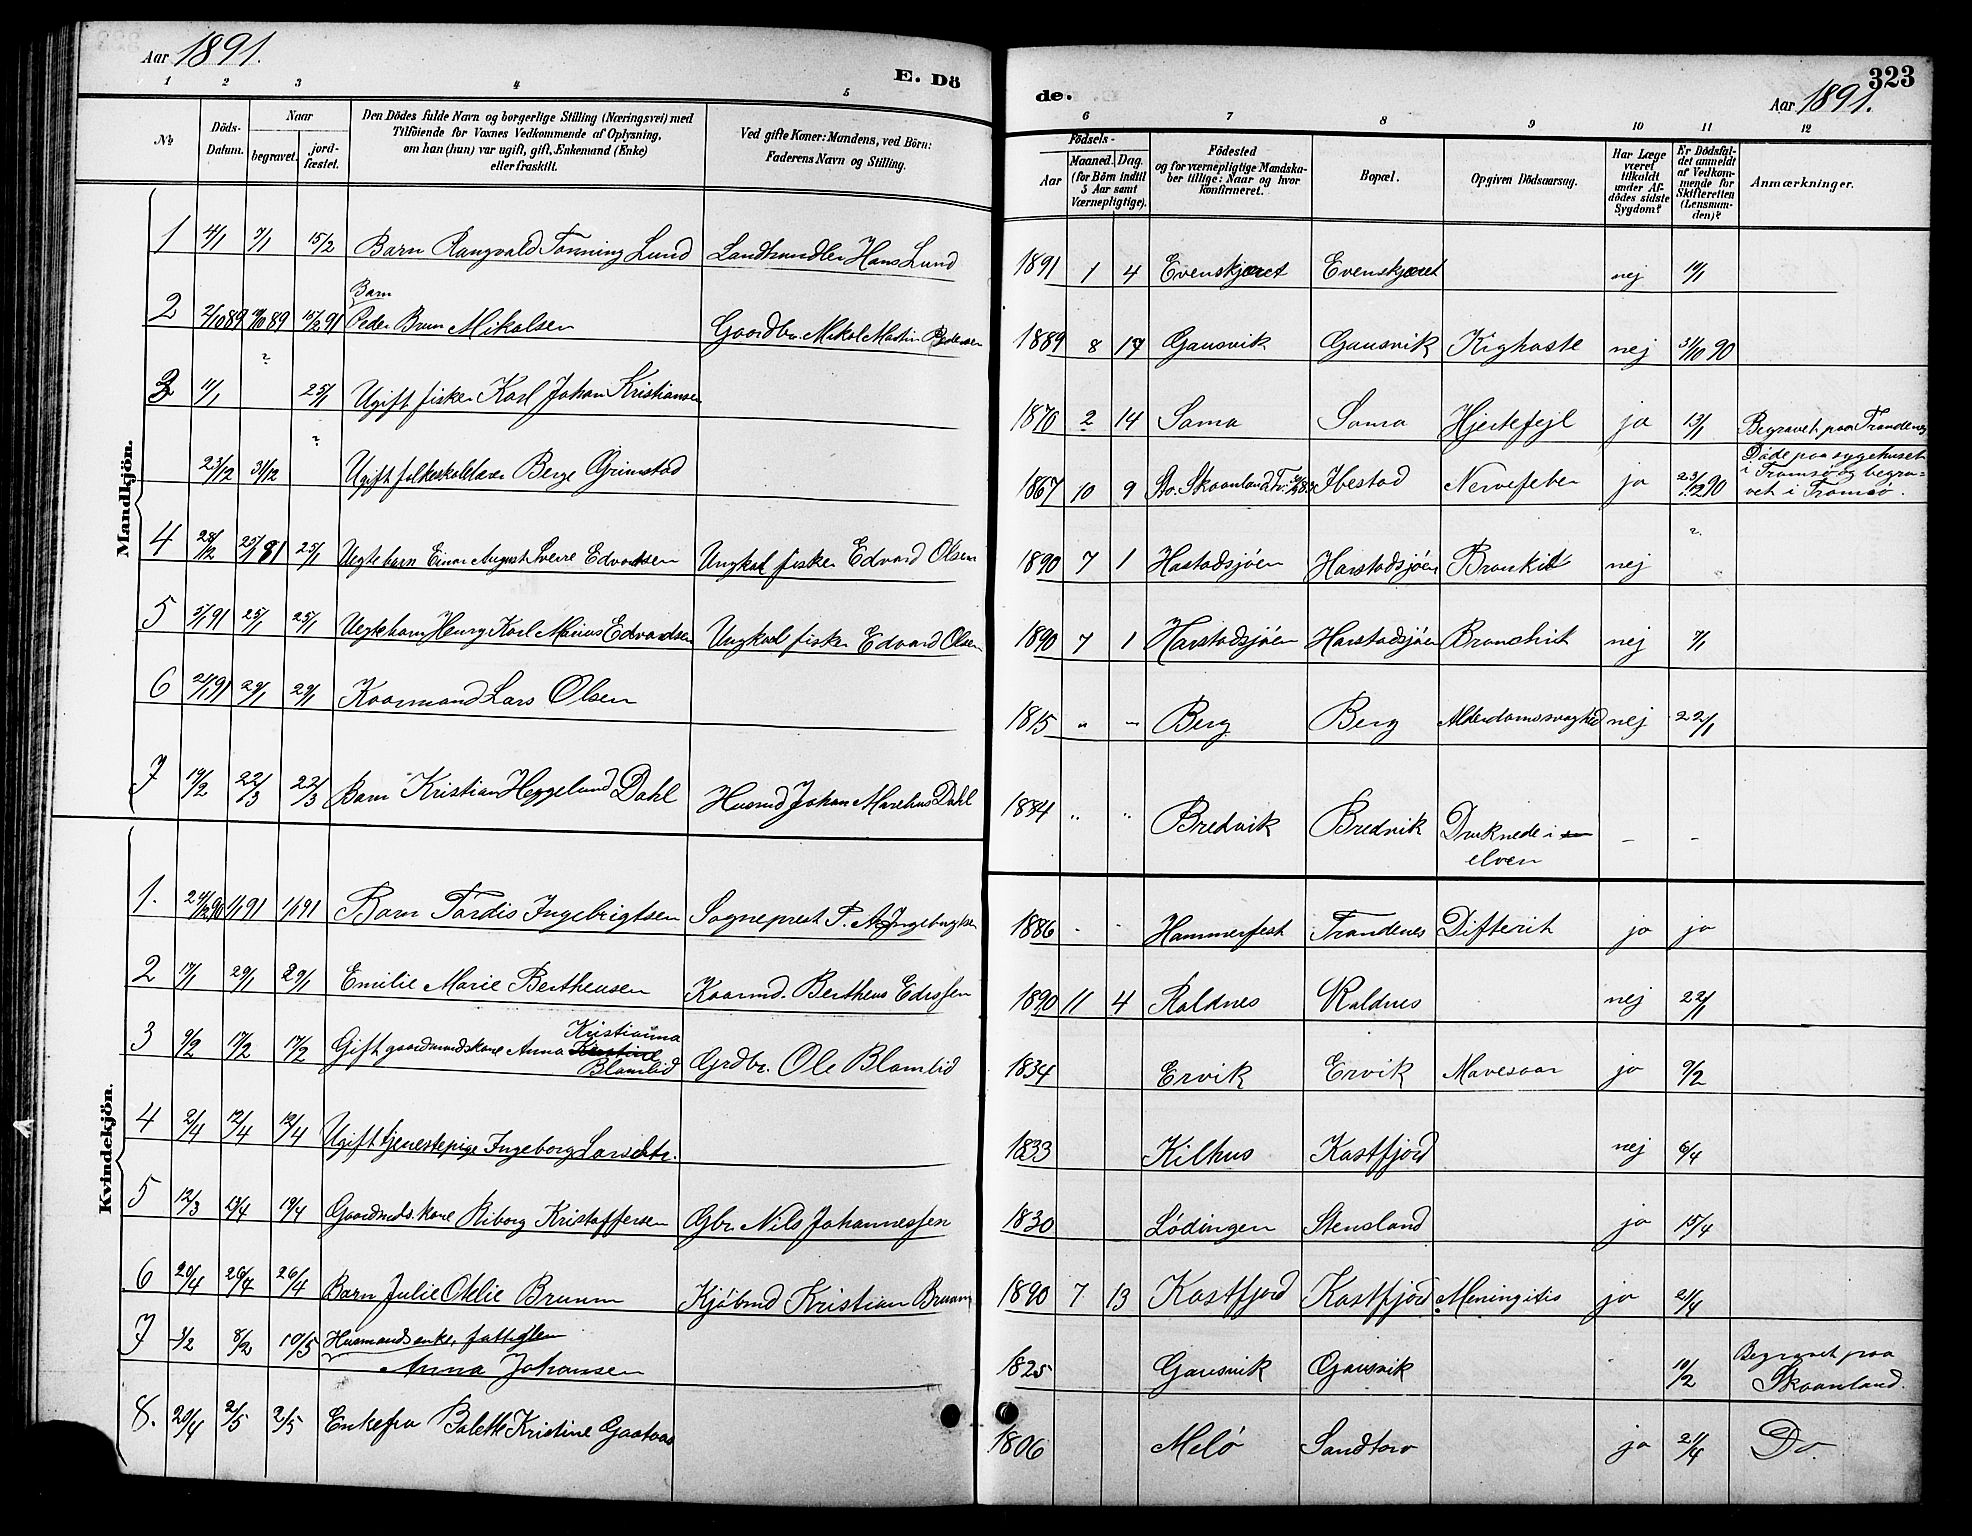 Aar 1891.
E. Dö
de.
323
Aar 1891.
1 2 3 4 5
6 7 8 9 10 11 12
No
Döds-
Datum.
Naar
begravet.
jord-
fæstet.
Den Dödes fulde Navn og borgerlige Stilling (Næringsvei) med
Tilföiende for Voxnes Vedkommende af Oplysning,
om han (hun) var ugift, gift, Enkemand (Enke)
eller fraskilt.
Ved gifte Koner: Mandens, ved Börn:
Faderens Navn og Stilling.
Födsels-
Aar
Maaned.
Dag.
(for Börn indtil
5 Aar samt
Værnepligtige).
Födested
og for værnepligtige Mandska-
ber tillige: Naar og hvor
konfirmeret.
Bopæl.
Opgiven Dödsaarsag.
Har Læge
været
tilkaldt
under Af-
dödes sidste
Sygdom?
Er Dödsfal-
det anmeldt
af Vedkom-
mende for
Skifteretten
(Lensman-
den)?
Anmærkninger.
Mandkjön.
1 4/1 7/1 15/2 Barn Rangvald Tonning Lund Landhandler Hans Lund 1891 1 4 Evenskjæret Evenskjæret nej
2 Barn
Peder Brun Mikalsen Gaardbr. Mikal Martin Pedersen 1889 8 Gausvik Gausvik Kighoste nej 31/10 90
3 11/1 25/1 Ugift fisker Karl Johan Kristiansen 1870 2 14 Sama Sama Hjertefejl ja 13/1 Begravet paa Trondenes
23/12 31/12 ? Ugift folkeskolelærer Berge Grimstad 1867 10 9 Ibestad Nervefeber ja 23/12 90 Døde paa sygehuset
i Tromsø og begra-
vet i Tromsø.
4 28/12 25/1 25/1 Uegte barn Einar August Sverre Edvardsen Ungkal fisker Edvard Olsen 1890 7 1 Hastadsjøen Harstadsjøen nej ?
5 25/1 25/1 Uegte barn Karl Marius Edvardsen Ungkal fisker Edvard Olsen 1890 7 1 Harstadsjøen Harstadsjøen nej
6 21/1 91 29/1 29/1 Kaarmand Lars Olsen 1815 " " Berg Berg Alderdomssvaghed nej 22/1
7 19/2 22/3 22/3 Barn Kristian Heggelund Dahl Husmd Johan Dahl 1884 " " Bredvik Bredvik Druknede i
elven - -
Kvindekjön.
1. 24/12 90 1/1 91 1/1 91 Barn Tordis Ingebrigtsen Sogneprest P. A. Ingebrigtsen 1886 - - Hammerfest Trondenes Difterit ja ja
2 17/1 29/1 29/1 Emilie Marie Bertheusen Kaarmd. Bertheus Edissen 1890 11 4 Raldnes Raldnes nej 22/1
3 9/2 17/2 17/2 Gift gaardmandskone Anna Kristianna
Kirstine
Blomlid Grdbr. Ole Blomlid 1834 Ervik Ervik Mavesaar ja 9/2
4 2/4 12/4 12/4 Ugift tjenestepige Ingeborg Larsdtr. 1833 Kilhus Kastfjord nej 6/4
5 12/3 19/4 19/4 Gaardmds. kone Riborg Kristoffersen Gbr. Nils Johannessen 1830 Lødingen Stensland ja 15/4
6 20/4 26/4 26/4 Barn Julie Otelie Bruun Kjøbmd Kristian Bruun 1890 7 13 Kastfjord Kastfjord Meningitis ja 21/4
7 3/2 8/2 10/5 Husmandsenke, fattiglem
Anna Johansen 1825 Gausvik Gausvik 10/2 Begravet paa
Skaanland.
8. 20/4 2/5 2/5 Enkefru Bolette Kristine 1806 Melø Sandtorv ja 21/4 Do.